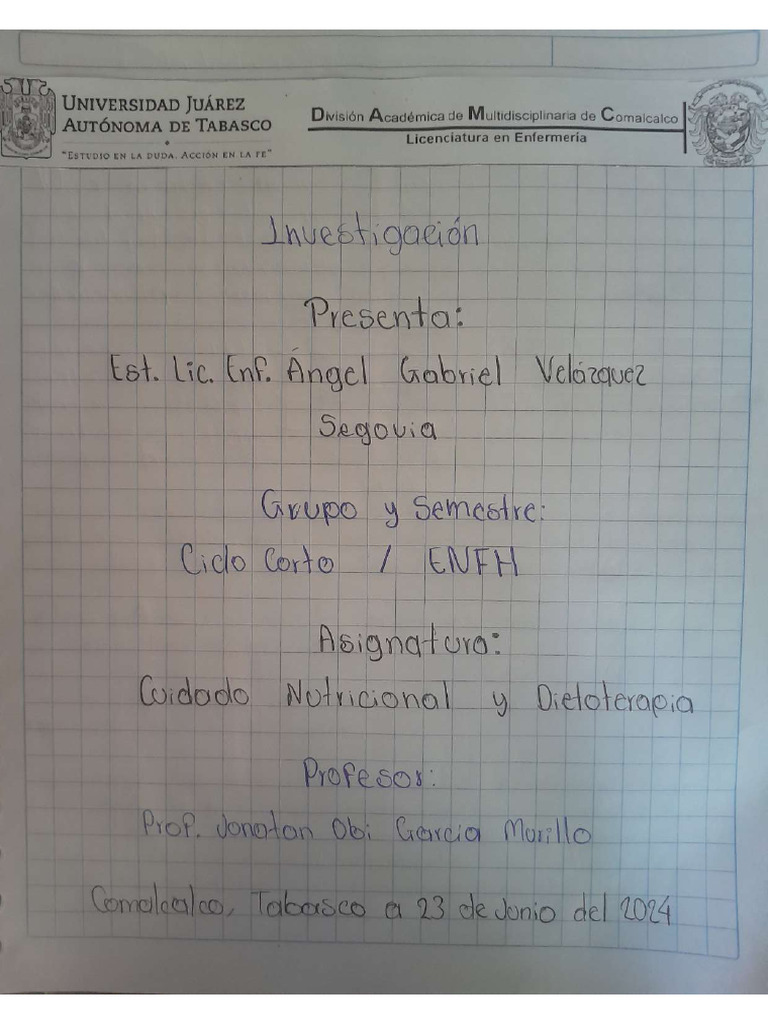 UNIVERSIDAD JUÁREZ
AUTÓNOMA DE TABASCO
"ESTUDIO EN LA DUDA. ACCIÓN EN LA FE"
División Académica de Multidisciplinaria de Comalcalco
Licenciatura en Enfermería
Investigación
Presenta:
Est. Lic. Enf. Ángel Gabriel Velázquez
Segovia
Grupo y Semestre:
Ciclo Corto / ENFH
Asignatura:
Cuidado Nutricional y Dietoterapia
Profesor:
Prof. Jonatan Obi García Murillo
Comalcalco, Tabasco a 23 de Junio del 2024